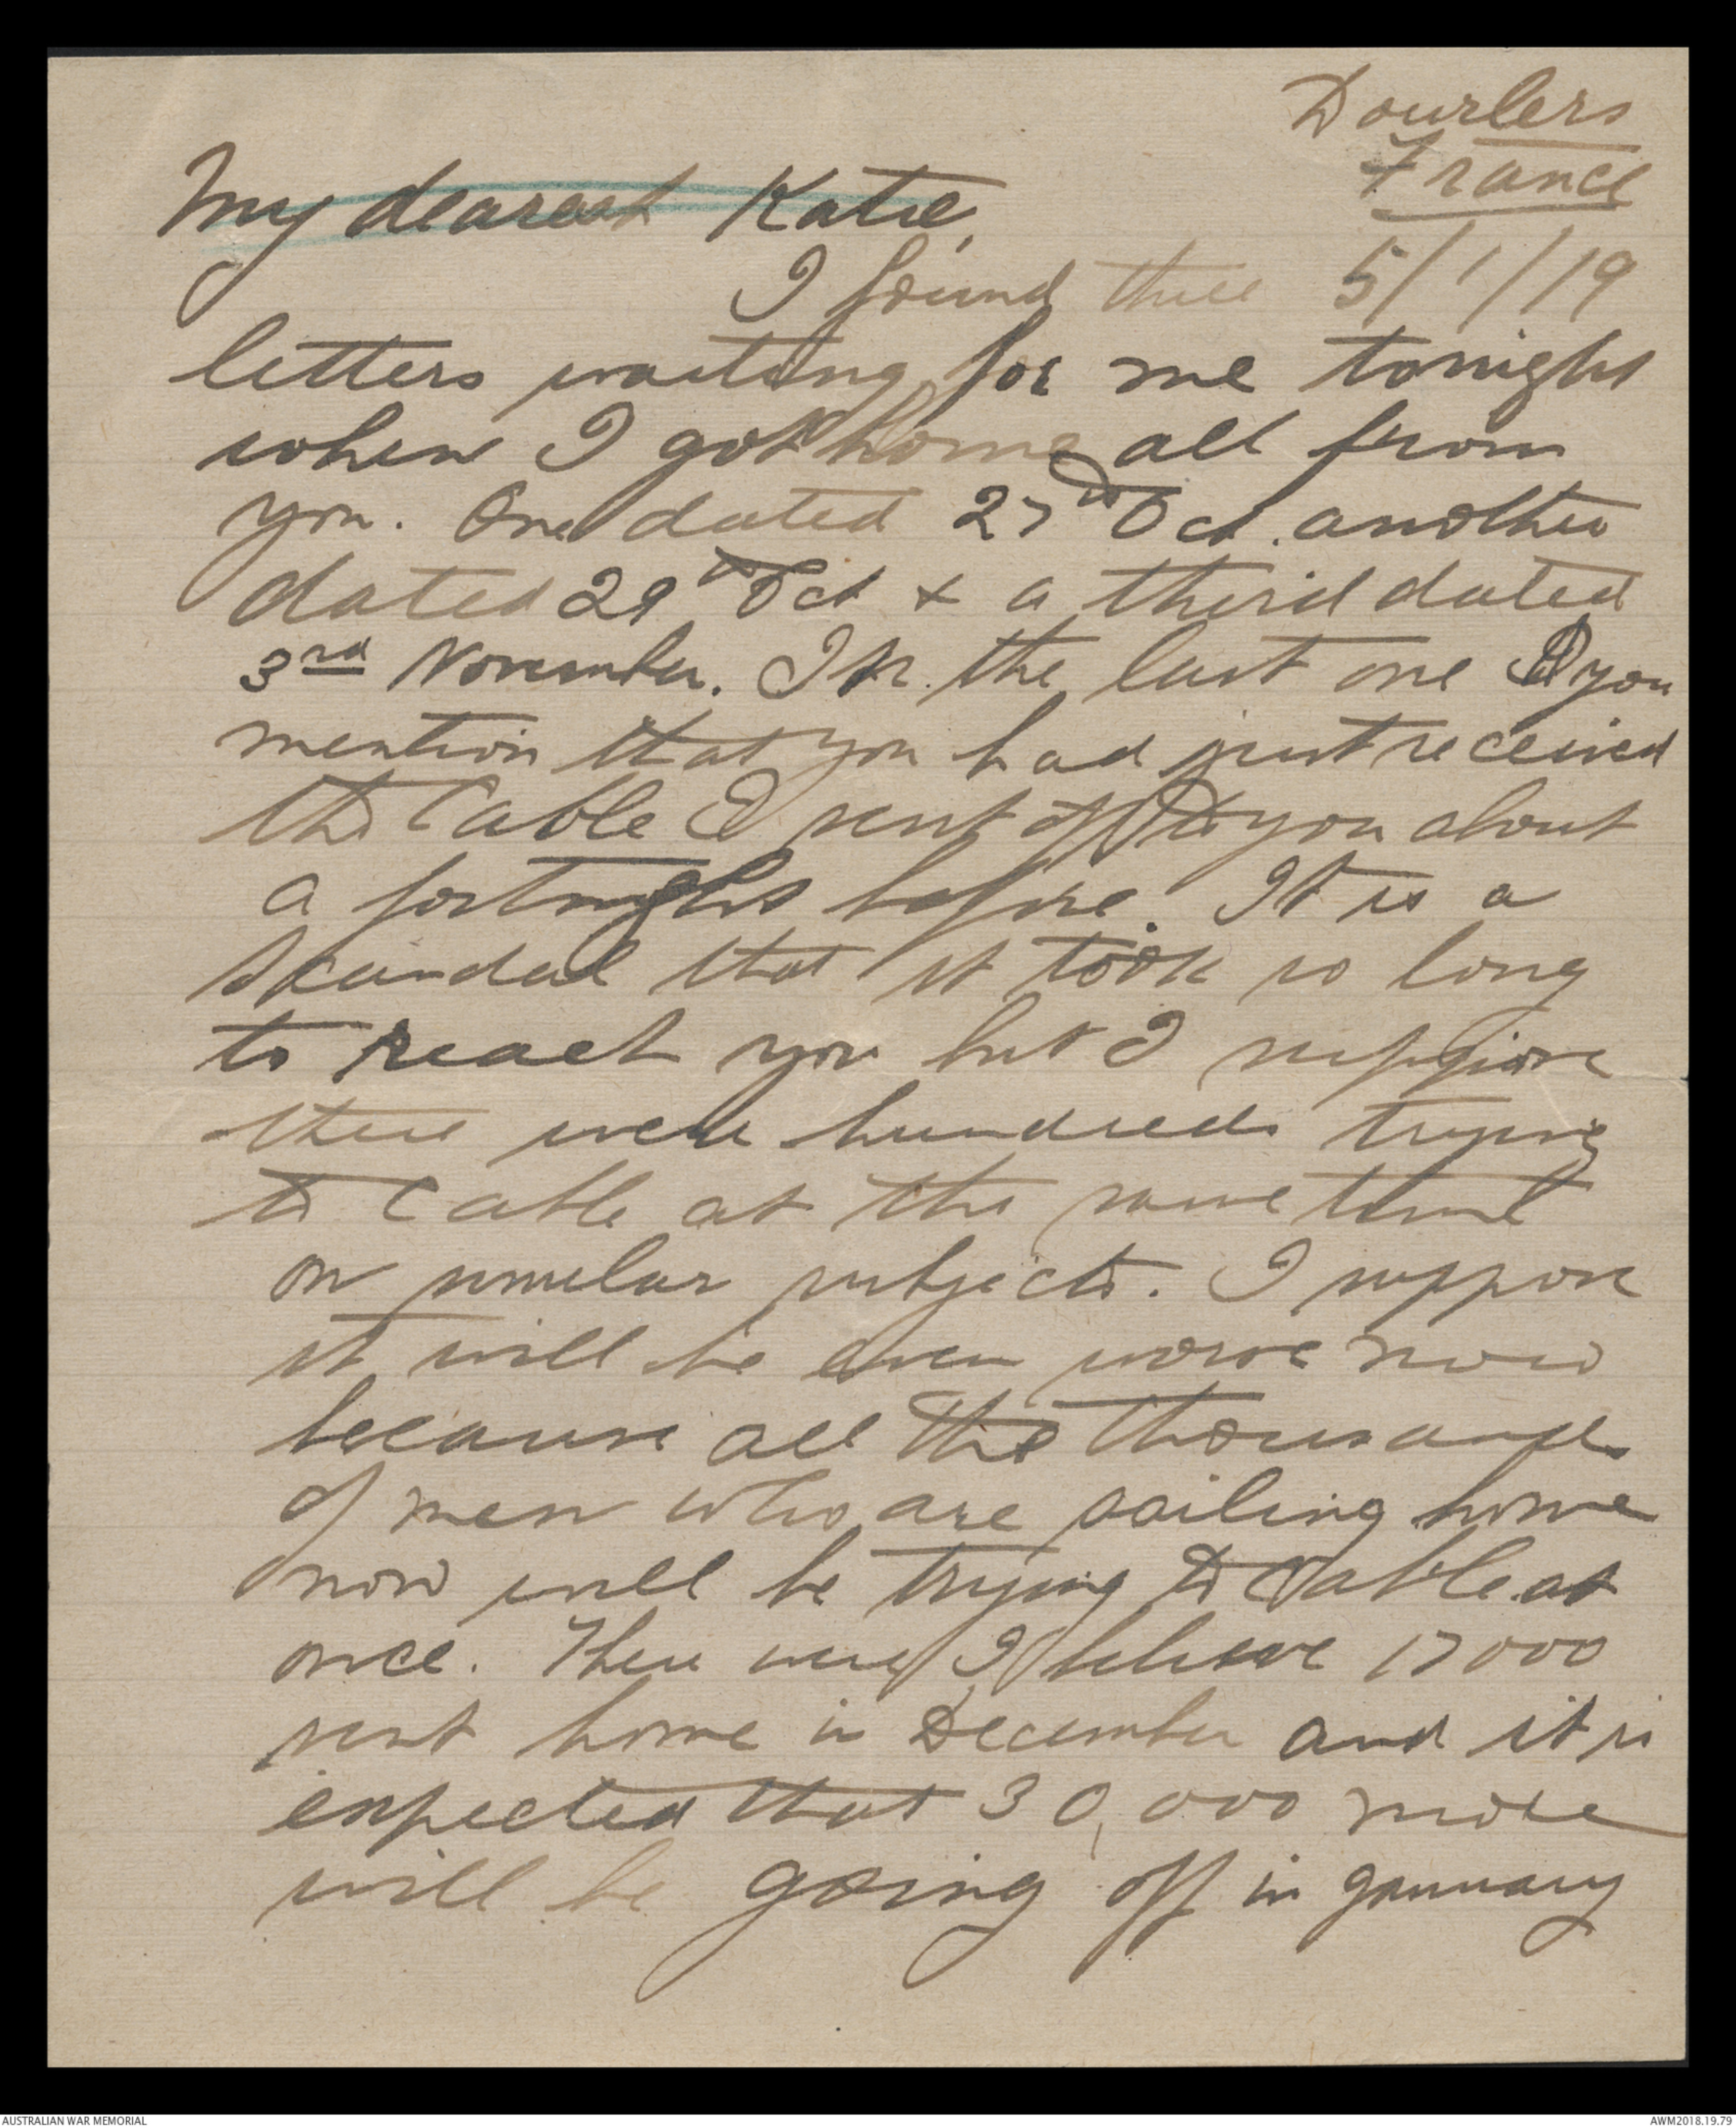 Dourlers
France
My dearest Katie,
5/1/19
I found three
letters waiting for me tonight
when I got home all from
you. One dated 27th Oct. another
dated 29th Oct & a third dated
3rd November. In the last one you
mention that you had just received
the Cable I sent off to you about
a fortnight before. It is a
scandal that it took so long
to reach you but I suppose
there were hundreds trying
to Cable at the same time
on similar subjects. I suppose
it will be even worse now
because all the thousands
of men who are sailing home
now will be trying to Cable at
once. There were I believe 17000
sent home in December and it is
expected that 30,000 more
will be going off in January
AUSTRALIAN WAR MEMORIAL
AWM2018.19.79